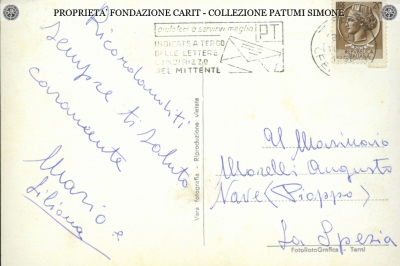 PROPRIETA' FONDAZIONE CARIT - COLLEZIONE PATUMI SIMONE
aiutateci a servirvi meglio
PT
INDICATE A TERGO
DELLE LETTERE
L'INDIRIZZO
DEL MITTENTE
Ricordandoti
sempre ti saluto
caramente
Mario e
Liliana
Vera fotografia - Riproduzione vietata
Al Marinaio
Morelli Augusto
Nave (Pioppo)
La Spezia
FotoRotoGrafica - Terni